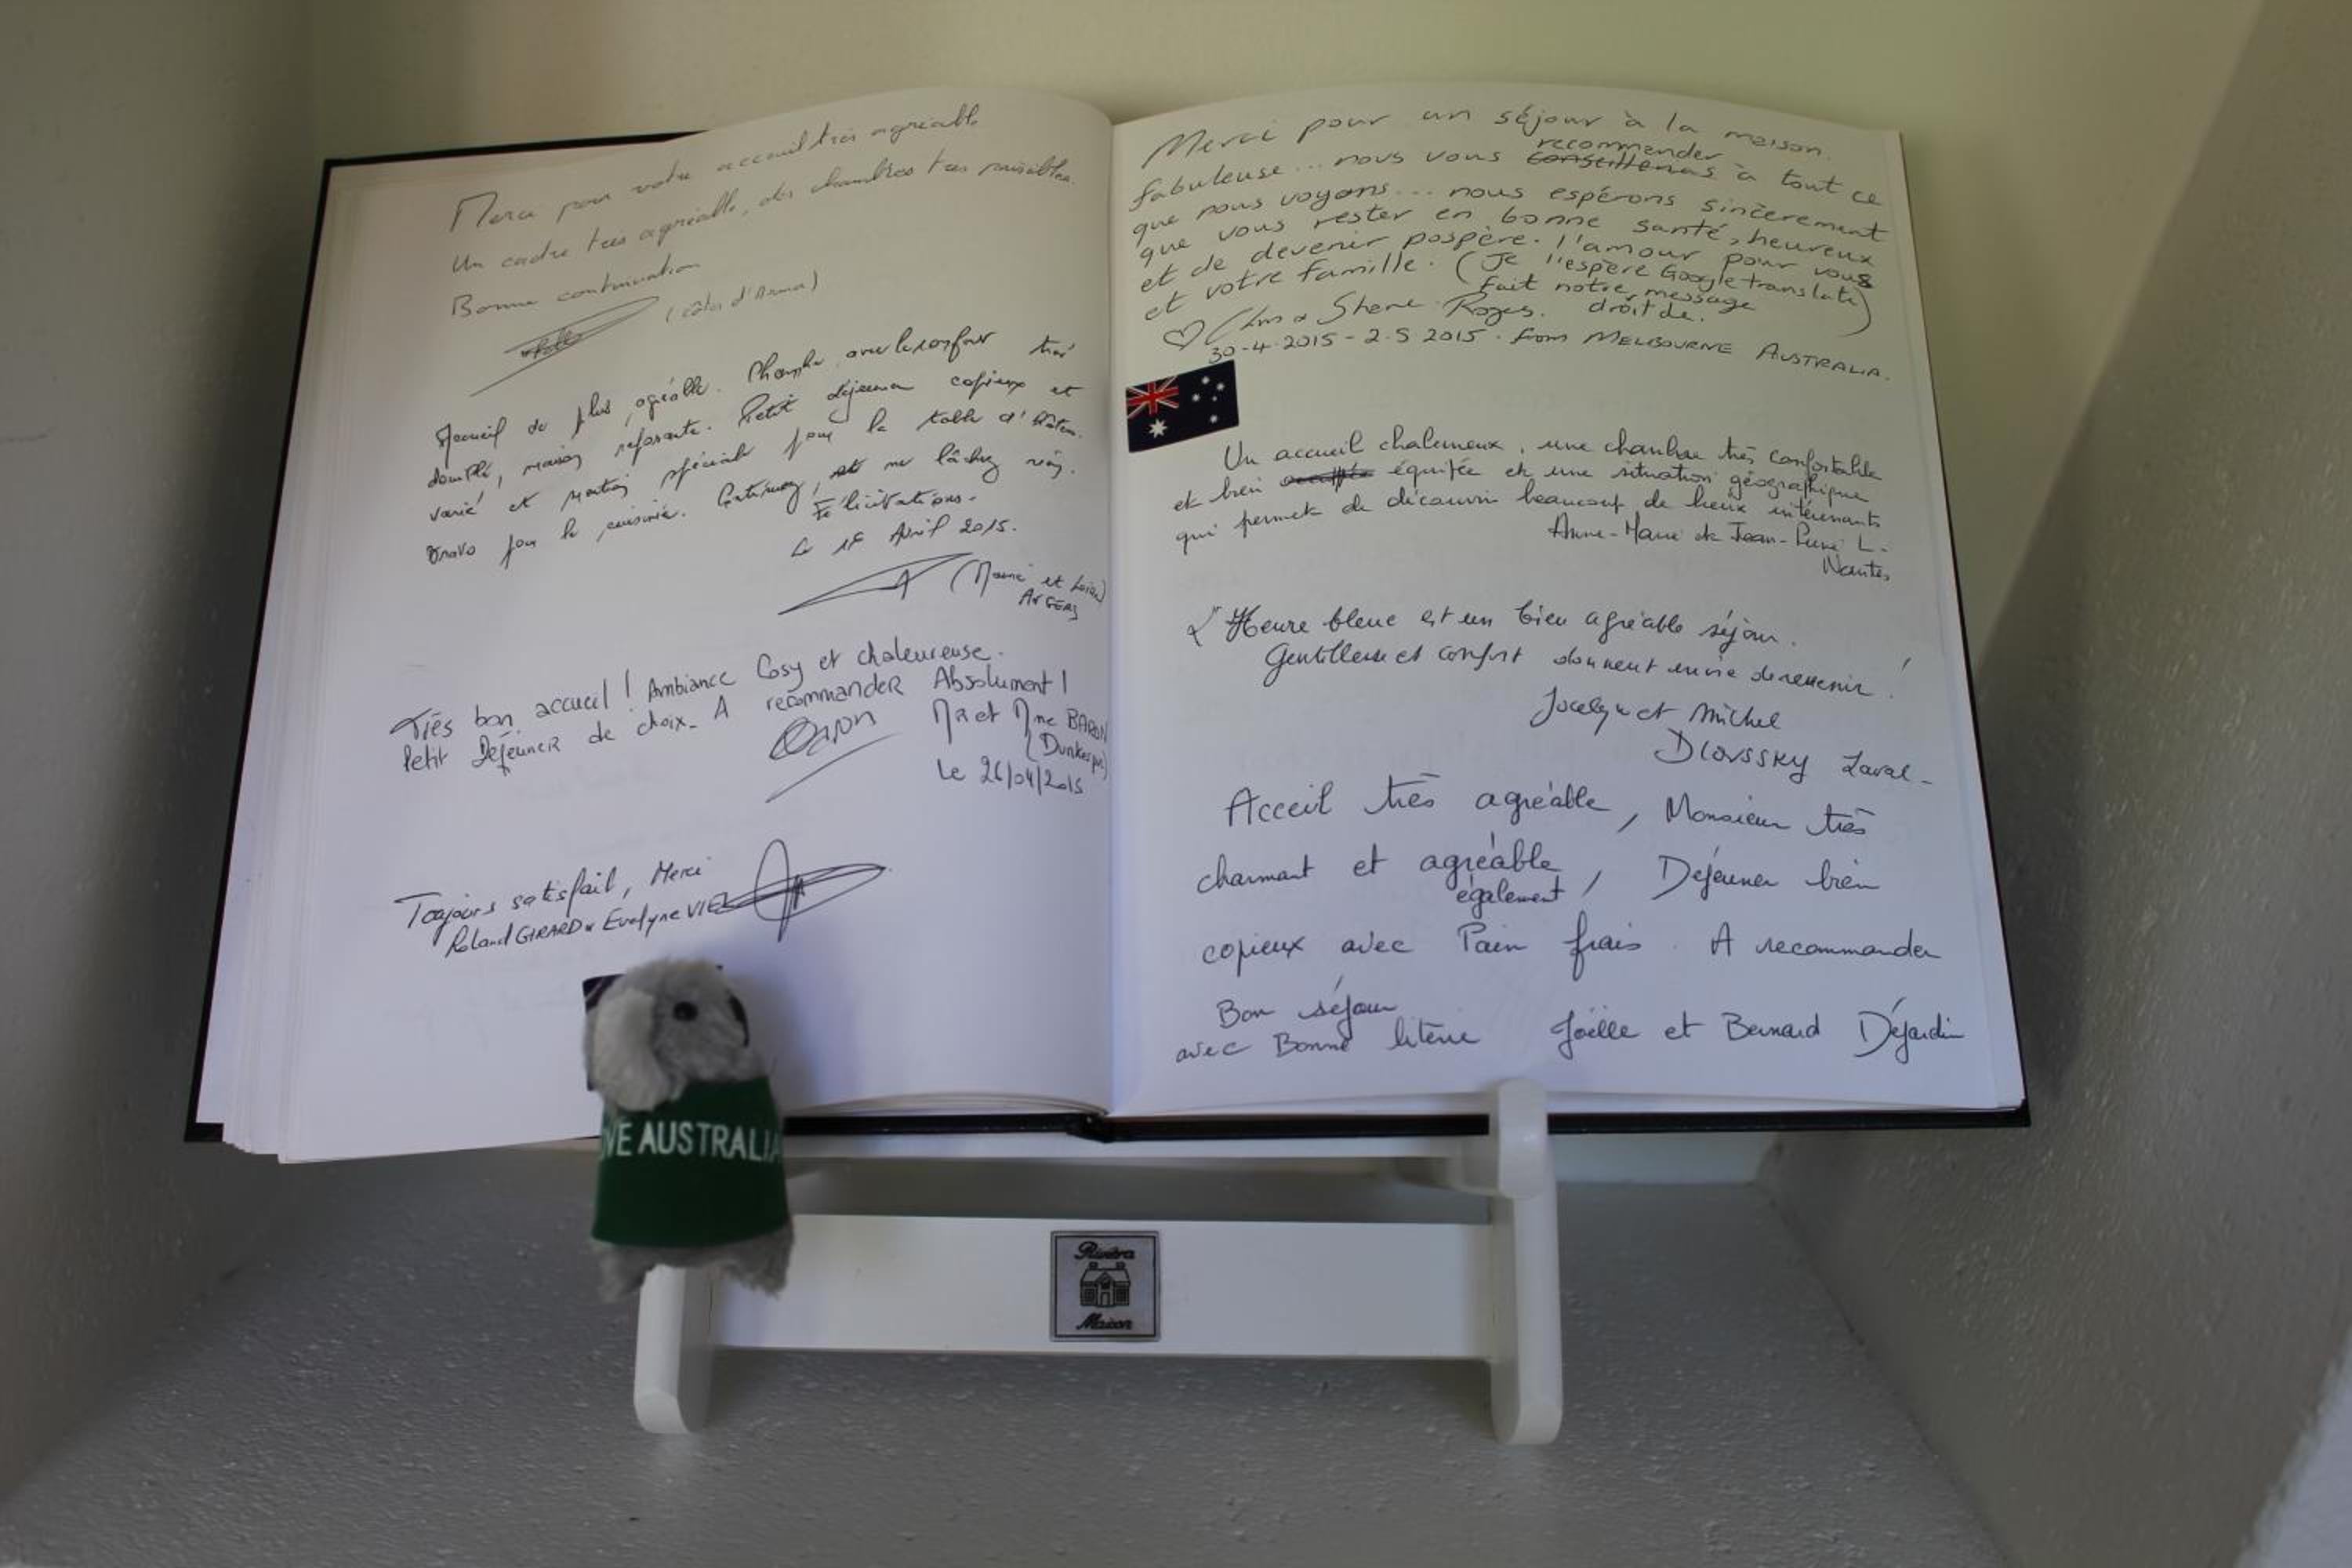 Merci pour votre accueil très agréable
Un cadre très agréable, des chambres très paisibles.
Bonne continuation
(Côtes d'Armor)
Accueil de plus agréable. Chambre avec le confort
douillé, maison reposante. Petit déjeuner copieux et
varié et mention spéciale pour la table d'hôtes.
Bravo pour la cuisinière. Continuez, ne lâchez rien.
Félicitations.
Le 17 Avril 2015.
(Maine et Loire)
ANGERS
Très bon accueil ! Ambiance Cosy et chaleureuse.
Petit Déjeuner de choix. A recommander Absolument !
Baron Mr et Mme BARON
(Dunkerque)
Le 26/04/2015
Toujours satisfait, Merci
Roland GIRARD & Evelyne VIEL
Merci pour un séjour à la maison
fabuleuse... nous vous recommander à tout ce
que nous voyons... nous espérons sincèrement
que vous rester en bonne santé, heureux
et de devenir pospère. l'amour pour vous
et votre famille. (Je l'espère Google translate
fait notre message
droit de.)
♡ Shene Roges.
30-4-2015 - 2.5 2015. from MELBOURNE AUSTRALIA.
Un accueil chaleureux, une chambre très confortable
et bien équipée et une situation géographique
qui permet de découvrir beaucoup de lieux intéressants
Anne-Marie et Jean-René L-
Nantes
L'Heure bleue est un bien agréable séjour.
Gentillesse et confort donnent envie de revenir !
Jocelyne et Michel
DLOUSSKY Laval-
Acceil très agréable, Monsieur très
charmant et agréable
également, Déjeuner bien
copieux avec Pain frais. A recommander
Bon séjour
avec Bonne literie Joëlle et Bernard Déjardin
VE AUSTRALIA
Rivièra
Maison